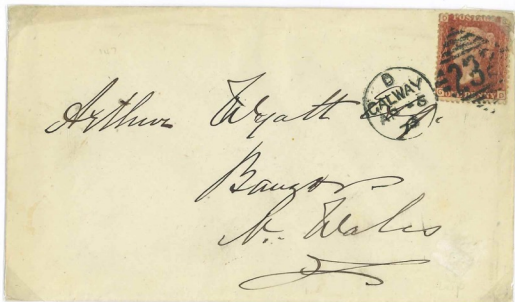 POSTAGE
23
D
GALWAY
Arthur Wyatt
Bangor
N. Wales